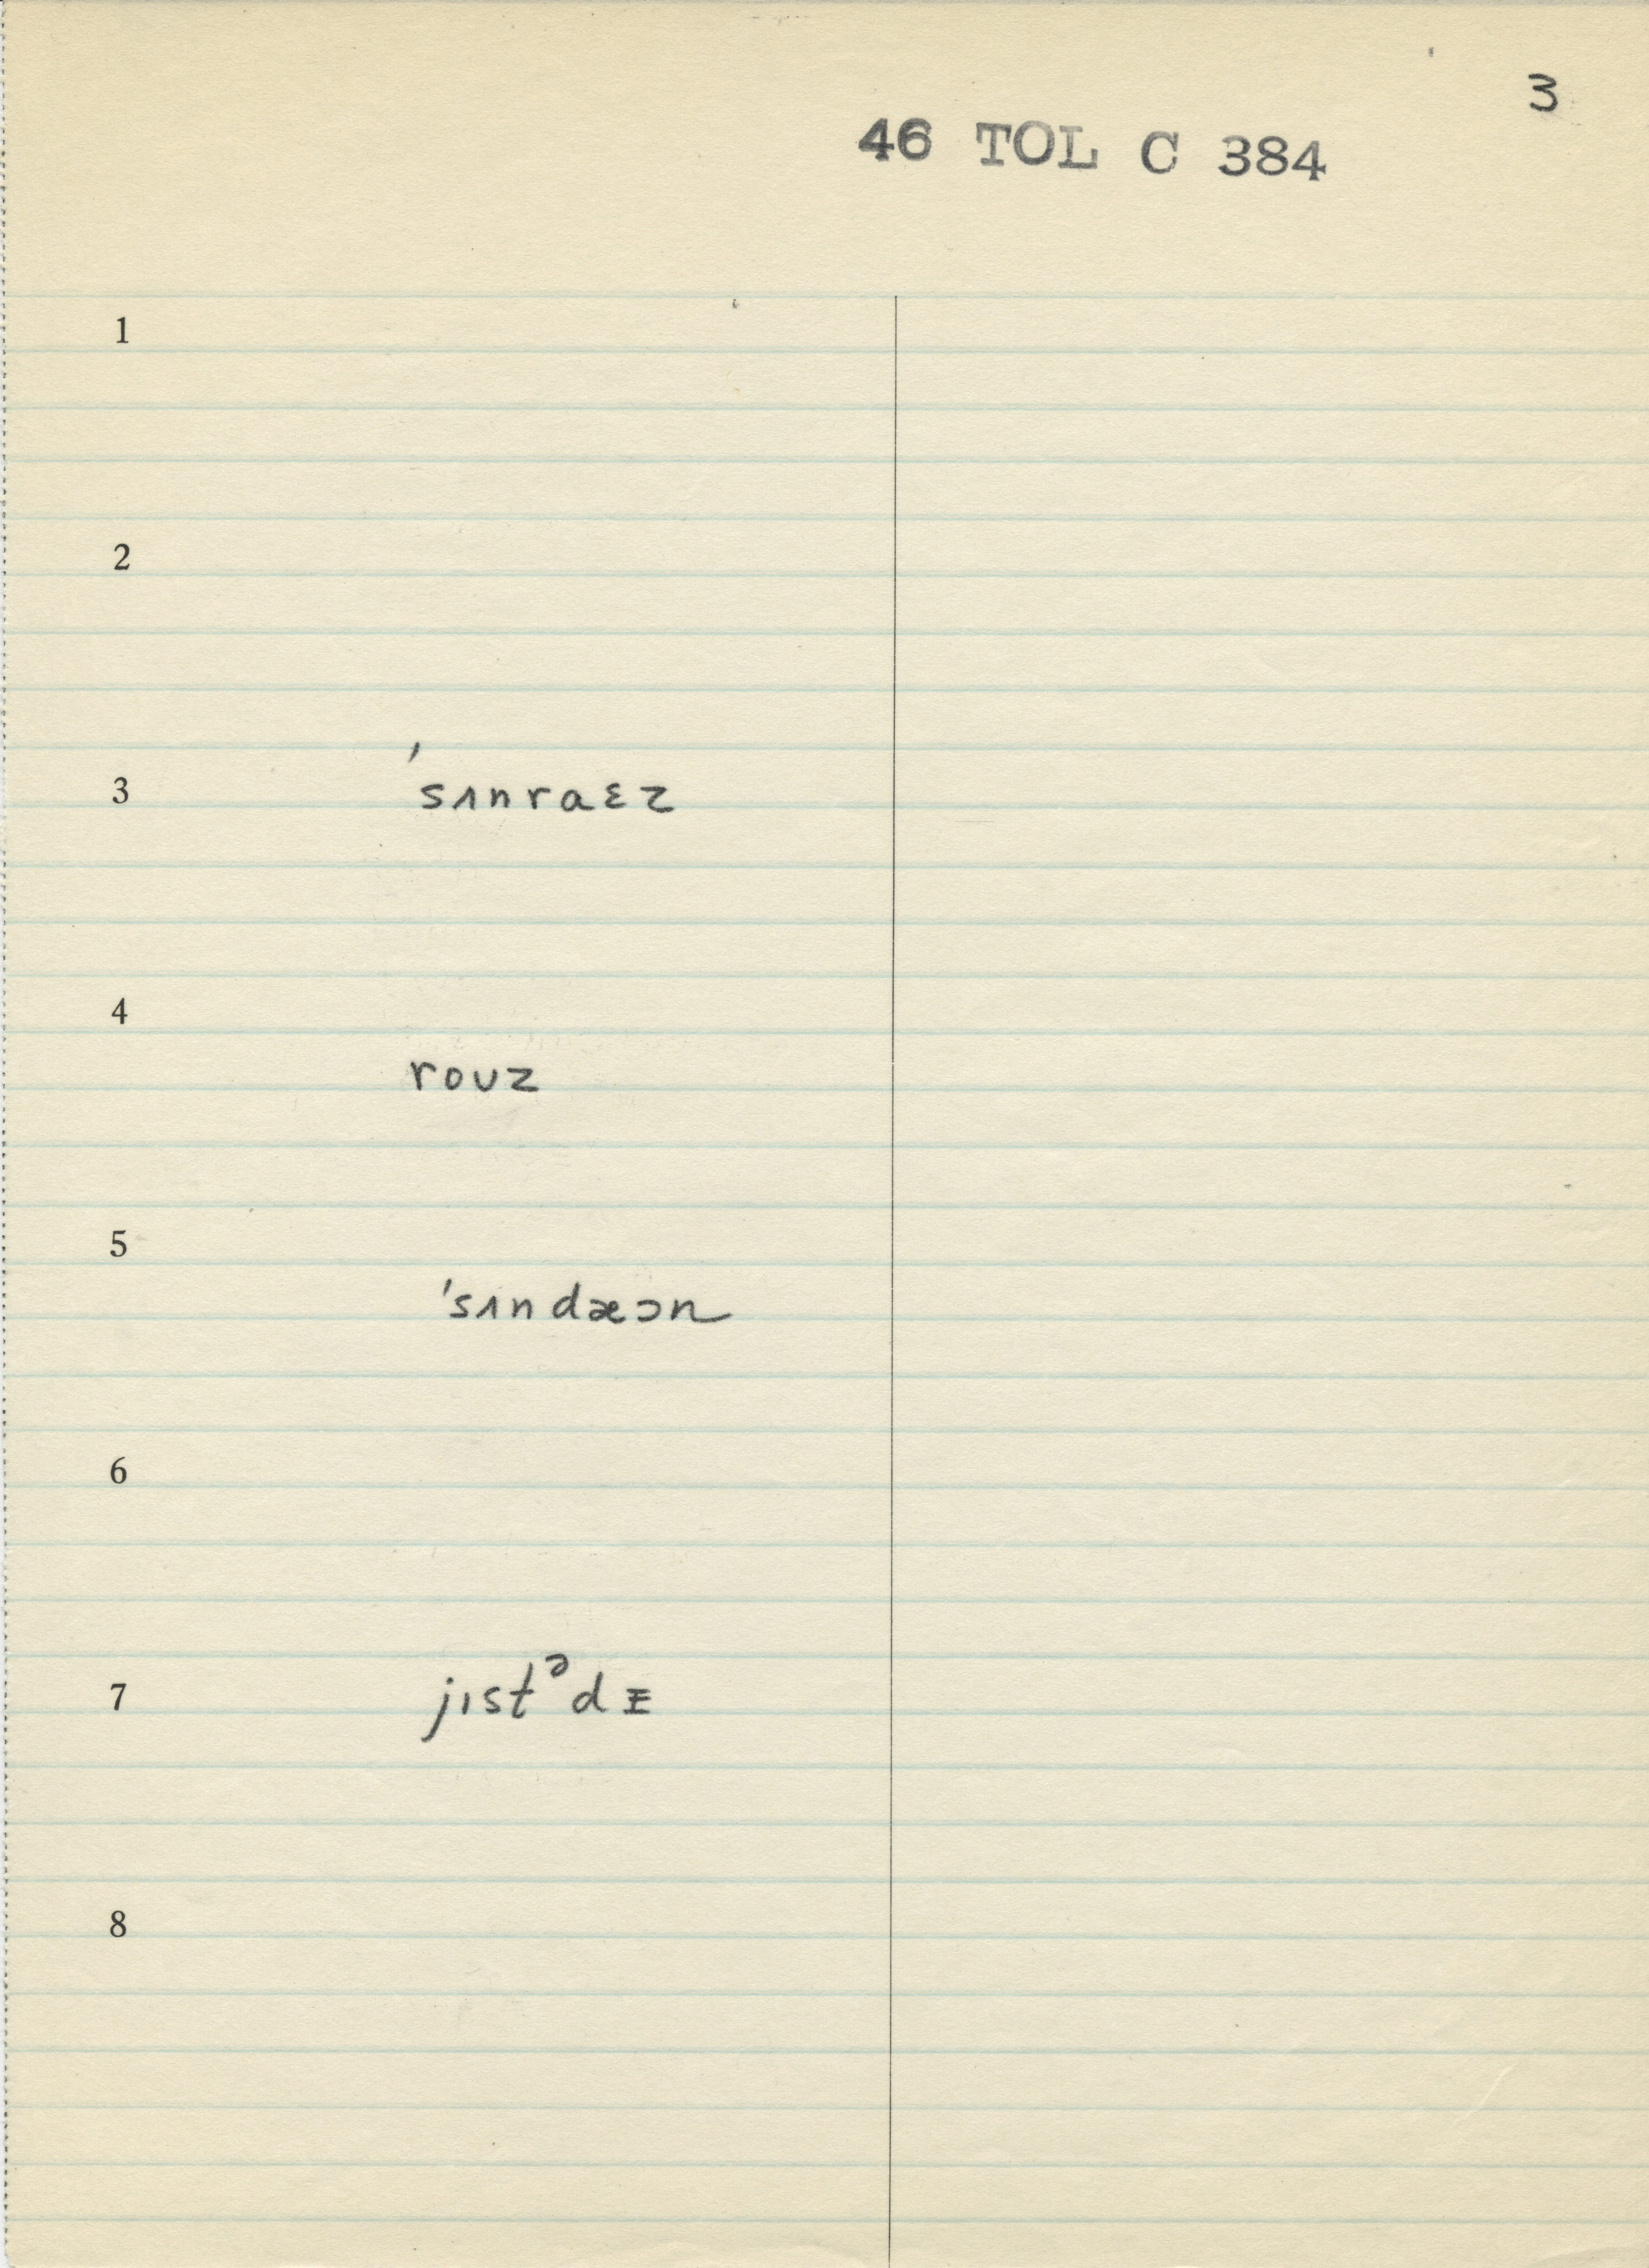 3
46 TOL C 384
1
2
3 ˈsʌnraɛz
4 roʊz
5 ˈsʌndæɔn
6
7 jɪstᵊdɪ
8